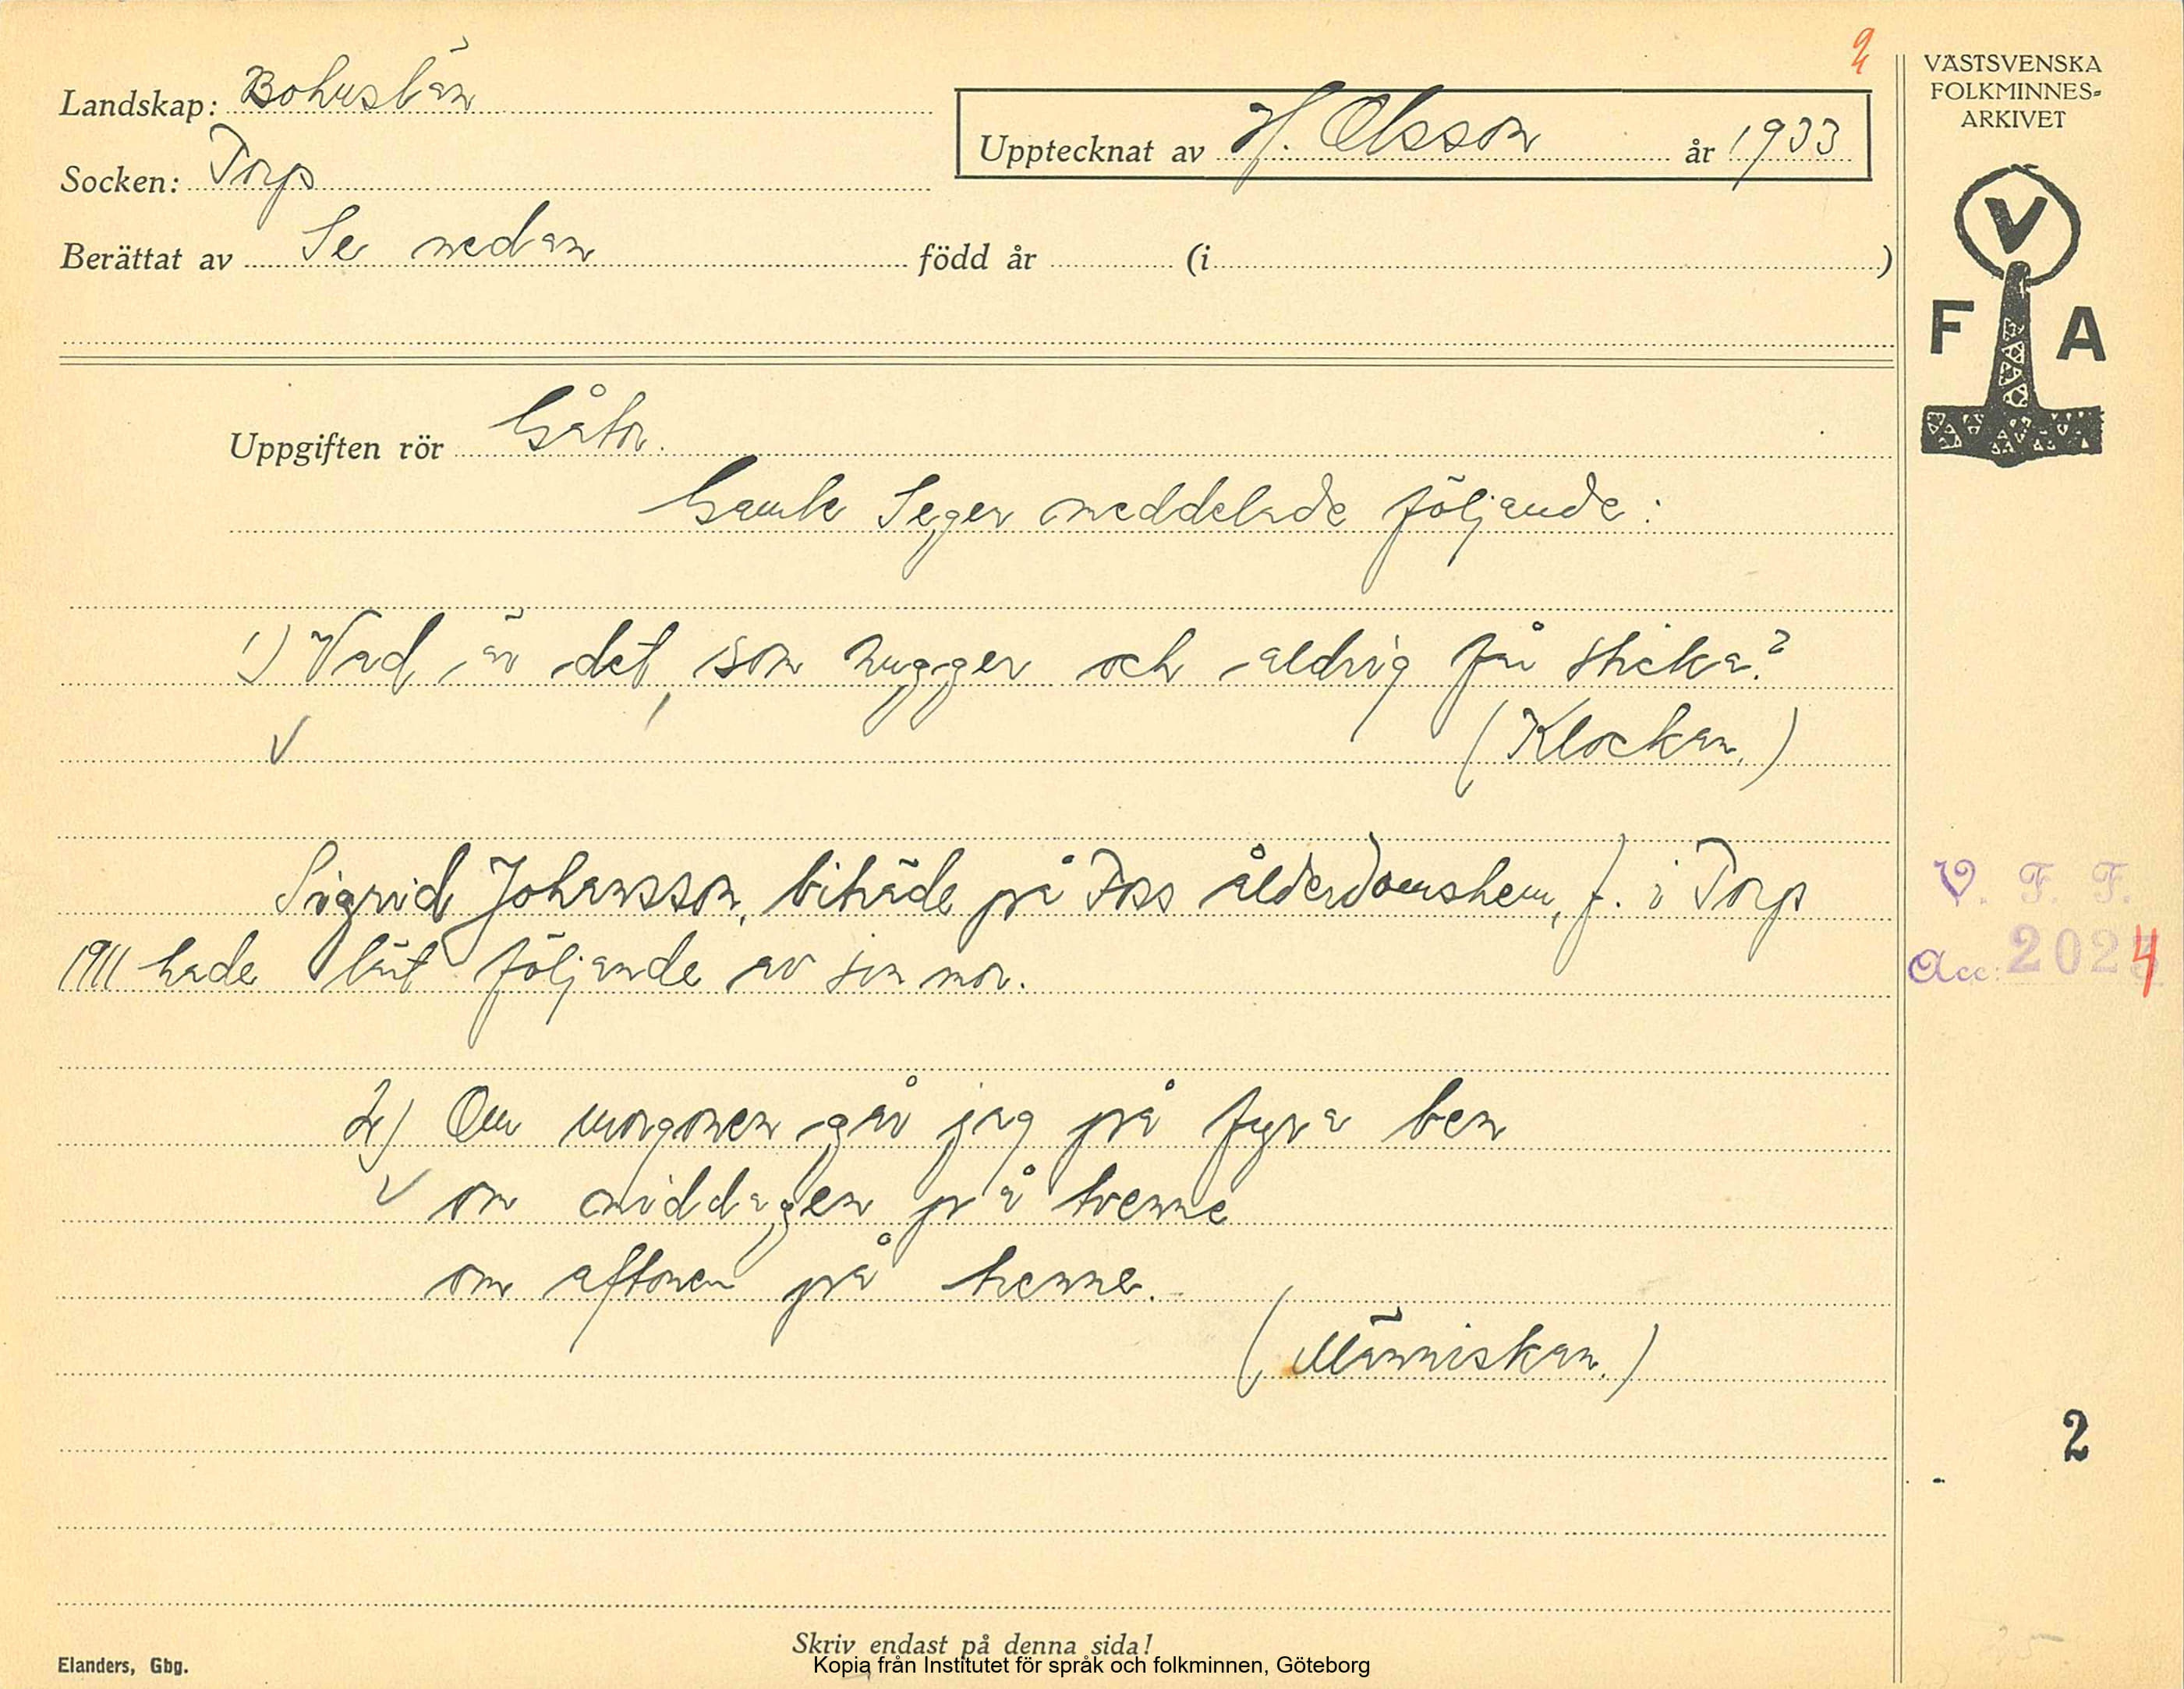 2
Landskap: Bohuslän
Socken: Torp
Upptecknat av H. Olsson år 1933
Berättat av Se nedan född år (i )
VÄSTSVENSKA
FOLKMINNES-
ARKIVET
V
F A
Uppgiften rör Gåtor.
Gamle Seger meddelade följande:
1) Vad är det, som hugger och aldrig får sticka?
(Klockan.)
Sigrid Johansson, biträde på Foss ålderdomshem, f. i Torp
1911 hade lärt följande av sin mor.
2) Om morgonen går jag på fyra ben
om middagen på tvenne
om aftonen på trenne.
(Människan.)
V. F. F.
Acc: 2024
2
Skriv endast på denna sida!
Elanders, Gbg.
Kopia från Institutet för språk och folkminnen, Göteborg